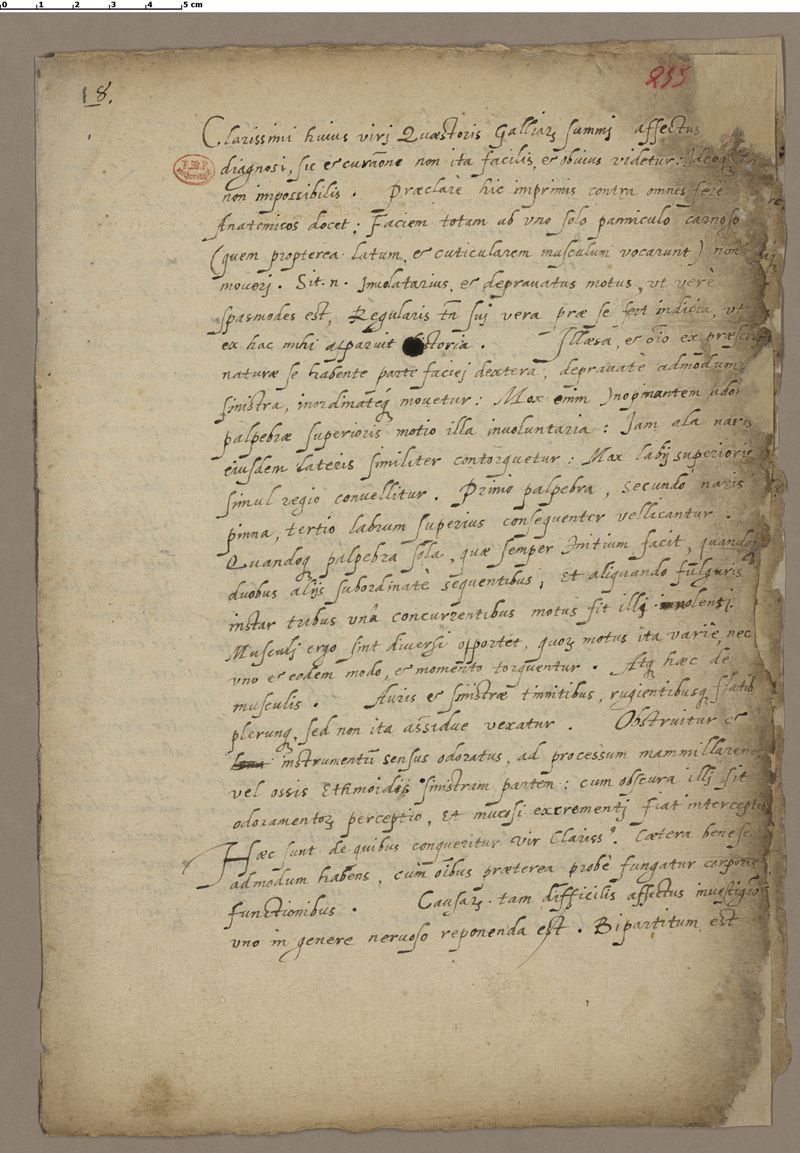 0 1 2 3 4 5 cm
18.
255
Clarissimi huius virj Quæstoris Galliaꝝ summj affectus
diagnosi, sic et curaõne non ita facilis, et obvius videtur: Ideoq
non impossibilis. Præclarè hic imprimis contra omnes ferè
Anatomicos docet; Faciem totam ab vno solo panniculo carnoso
(quem propterea latum, et cuticularem musculum vocarunt) non
moverj. Sit. n. Involatarius, et depravatus motus, vt verè
spasmodes est, Regularis tñ suj vera præ se fert indicia, vt
ex hac mihi apparuit historia. Illæsa, et oĩo ex præscr
naturæ se habente parte faciej dextera, depravatè admodum
sinistra, inordinateq movetur: Mox enim Inopinantem
palpebræ superioris motio illa involuntaria: Jam ala naris
eiusdem lateris similiter contorquetur: Max labij superioris
simul regio convellitur. Primo palpebra, secundo naris
pinna, tertio labrum superius consequenter vellicantur.
Quandoq palpebra sola, quæ semper Initium facit, quandoq
duobus alijs subordinatè sequentibus, et aliquando fulguris
instar tribus vnâ concurrentibus motus fit illj
Musculj ergo sint diversi opportet, quoꝝ motus ita variè, nec
vno et eodem modo, et momento torquentur. Atq hæc de
musculis. Auris et sinistræ tinnitibus, rugientibusq flatib
plerunq, sed non ita assidue vexatur. Obstruitur et
instrumentũ sensus odoratus, ad processum mammillarem
vel ossis Ethmoidis sinistram partem: cum obscura illj sit
odoramentoꝝ perceptio, et mucosi excrementj fiat interceptio
Hæc sunt de quibus conqueritur vir Clariss⁹. Cætera bene se
admodum habens, cùm oĩbus præterea probè fungatur corporis
functionibus. Causaꝝ tam difficilis affectus investigaõ
vno in genere nervoso reponenda est. Bipartitum est